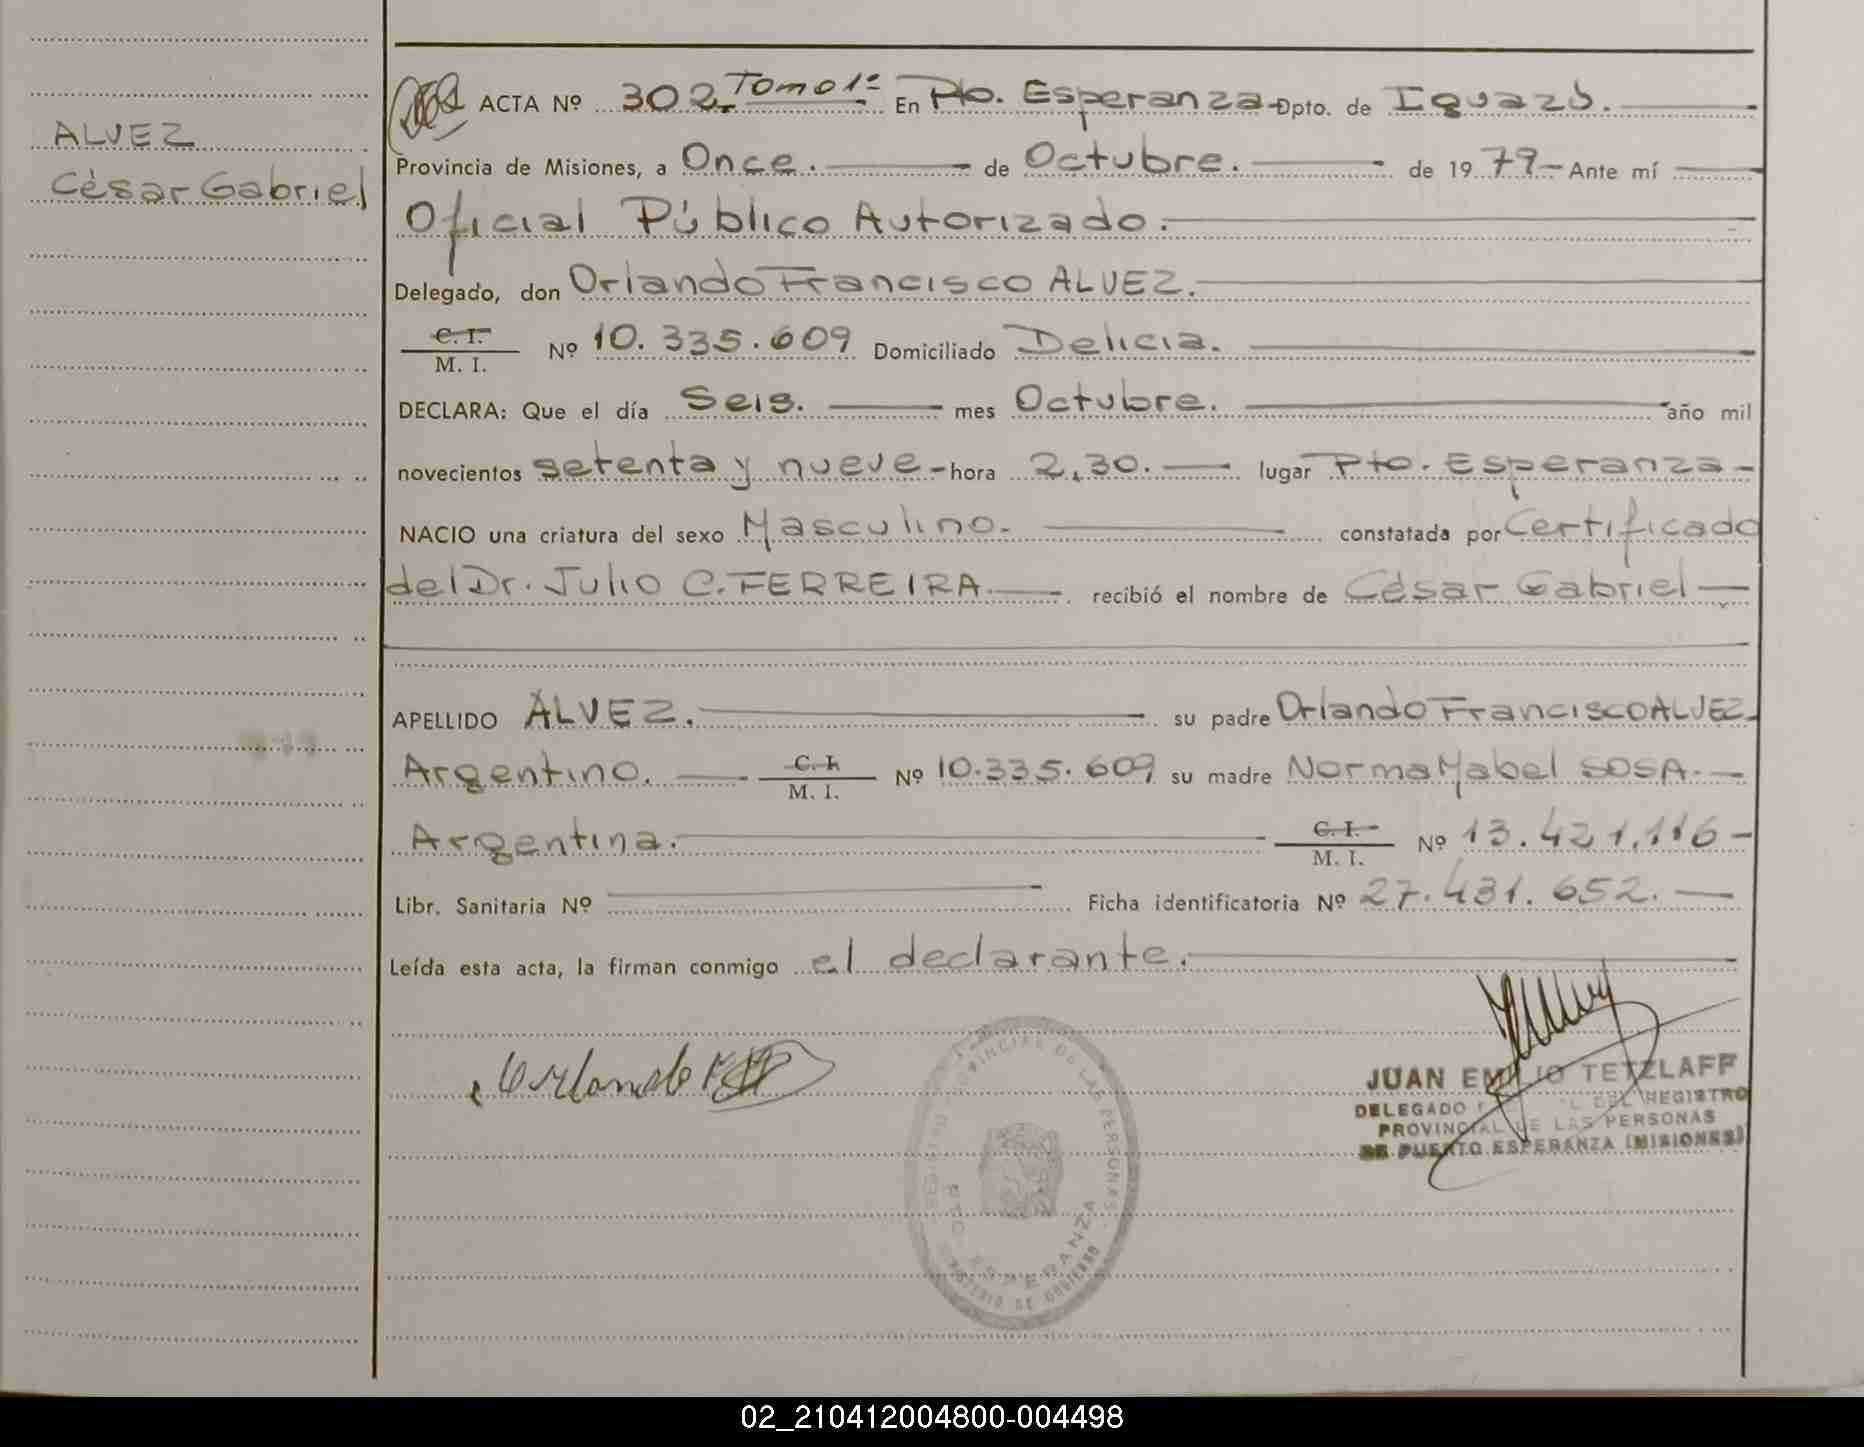 ALVEZ
César Gabriel
ACTA Nº 302. Tomo 1º En Pto. Esperanza Dpto. de Iguazú.
Provincia de Misiones, a Once. de Octubre. de 1979 Ante mí
Oficial Público Autorizado.
Delegado, don Orlando Francisco ALVEZ.
C. I.
M. I. Nº 10.335.609 Domiciliado Delicia.
DECLARA: Que el día Seis. mes Octubre. año mil
novecientos setenta y nueve - hora 2,30. lugar Pto. Esperanza -
NACIO una criatura del sexo Masculino. constatada por Certificado
del Dr. Julio C. FERREIRA recibió el nombre de César Gabriel
APELLIDO ALVEZ. su padre Orlando Francisco ALVEZ
Argentino. C. I. M. I. Nº 10.335.609 su madre Norma Mabel SOSA.
Argentina. C. I. M. I. Nº 13.421.116 -
Libr. Sanitaria Nº Ficha identificatoria Nº 27.431.652.
Leída esta acta, la firman conmigo el declarante.
Orlando
JUAN EMILIO TETZLAFF
DELEGADO DEL REGISTRO
PROVINCIAL DE LAS PERSONAS
DE PUERTO ESPERANZA (MISIONES)
REGISTRO PROVINCIAL DE LAS PERSONAS
PTO ESPERANZA
MINISTERIO DE GOBIERNO
02_210412004800-004498